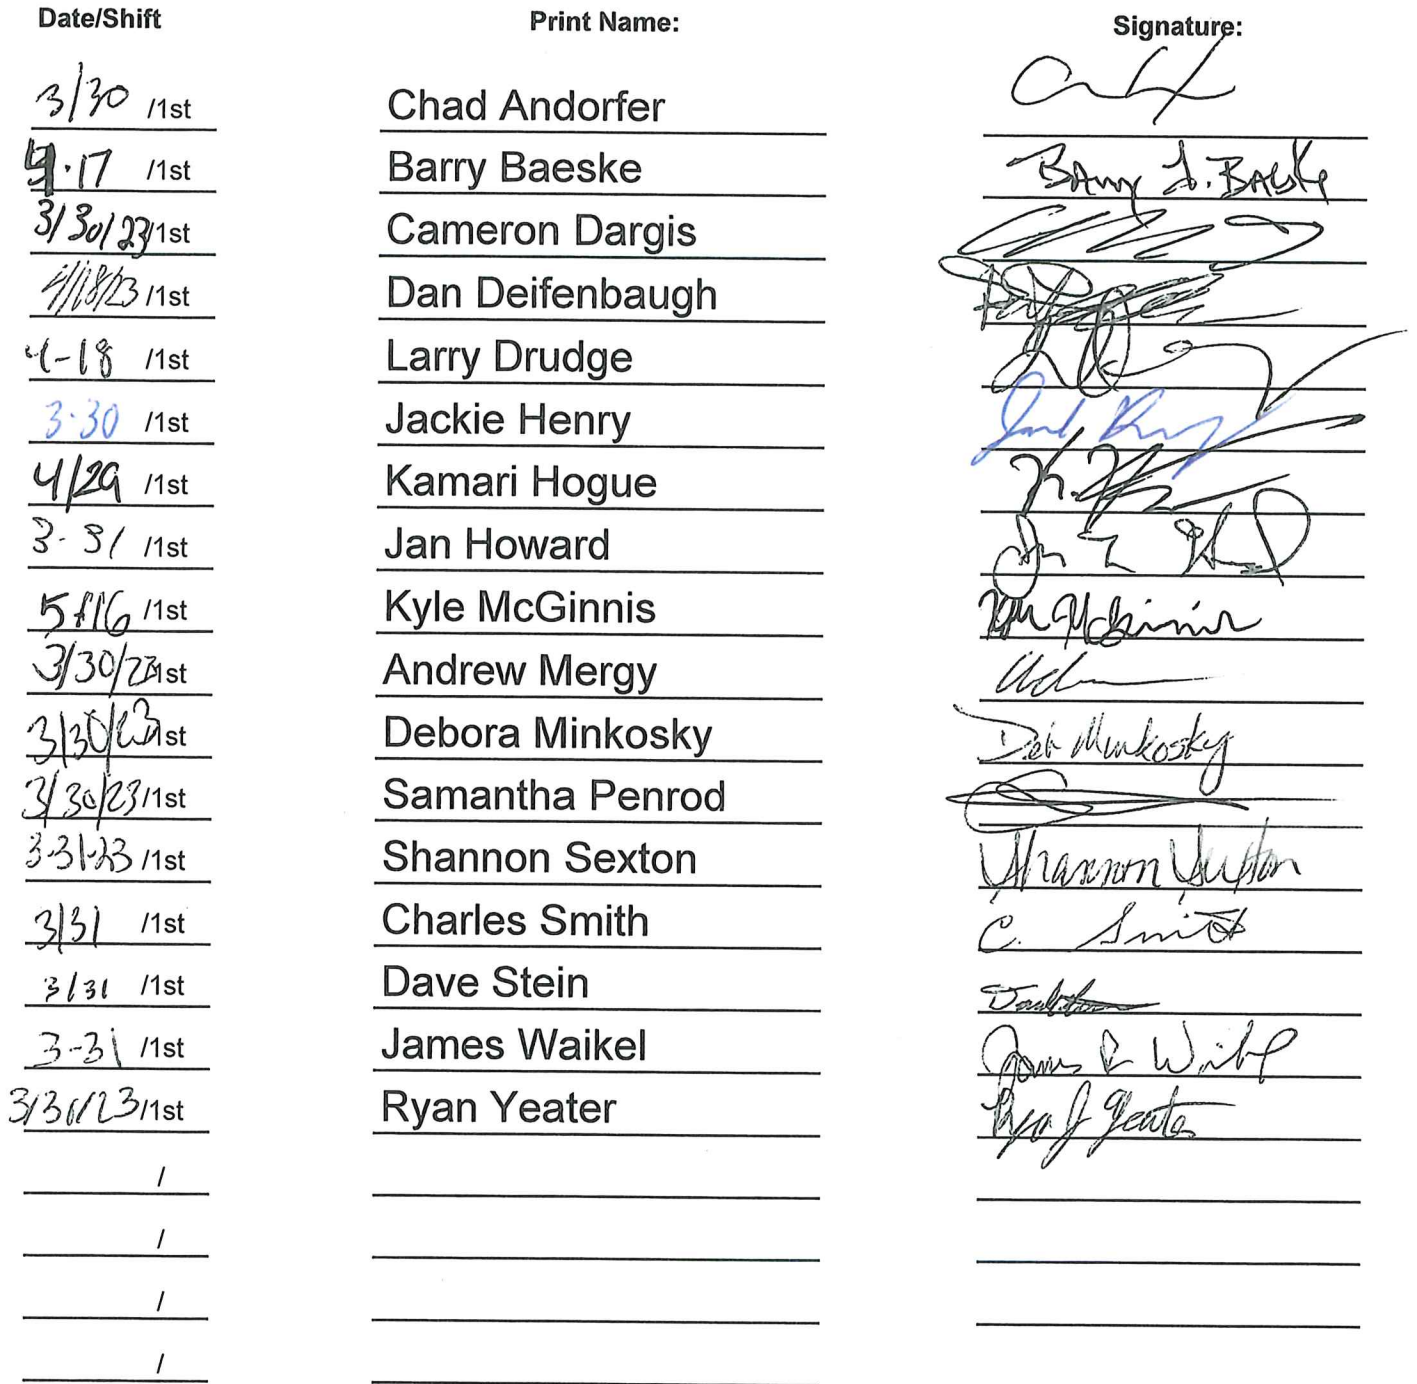 Date/Shift Print Name: Signature:
3/30 /1st Chad Andorfer
4·17 /1st Barry Baeske Barry L. Baeske
3/30/23/1st Cameron Dargis
4/18/23 /1st Dan Deifenbaugh
4-18 /1st Larry Drudge
3·30 /1st Jackie Henry
4/29 /1st Kamari Hogue K.
3-31 /1st Jan Howard
5/16 /1st Kyle McGinnis Kyle McGinnis
3/30/23/1st Andrew Mergy
3/30/23/1st Debora Minkosky Deb Minkosky
3/30/23/1st Samantha Penrod
3-31-23 /1st Shannon Sexton Shannon Sexton
3/31 /1st Charles Smith C. Smith
3/31 /1st Dave Stein
3-31 /1st James Waikel James E Waikel
3/31/23/1st Ryan Yeater Ryan J Yeater
/
/
/
/